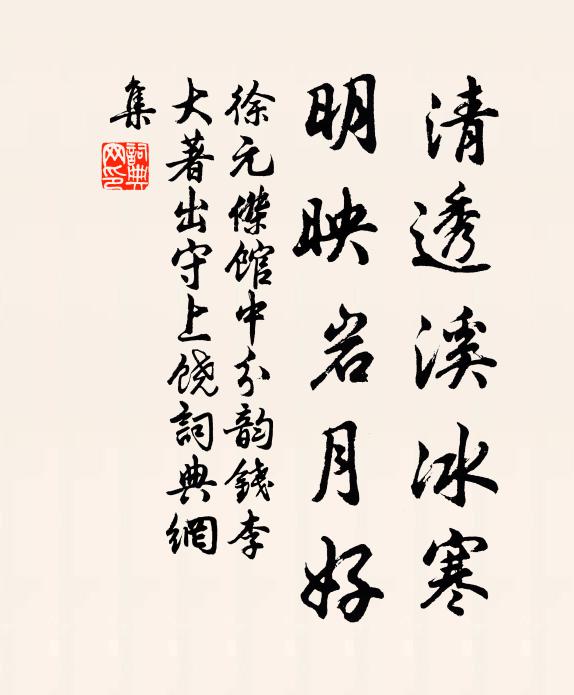 清透溪冰寒
明映岩月好
徐元傑館中分韵錢李
大著出守上饒詞典網
集
詞典
网印